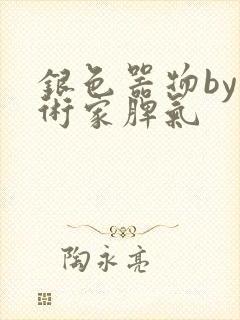 銀色器物by
術家脾氣
陶永亮